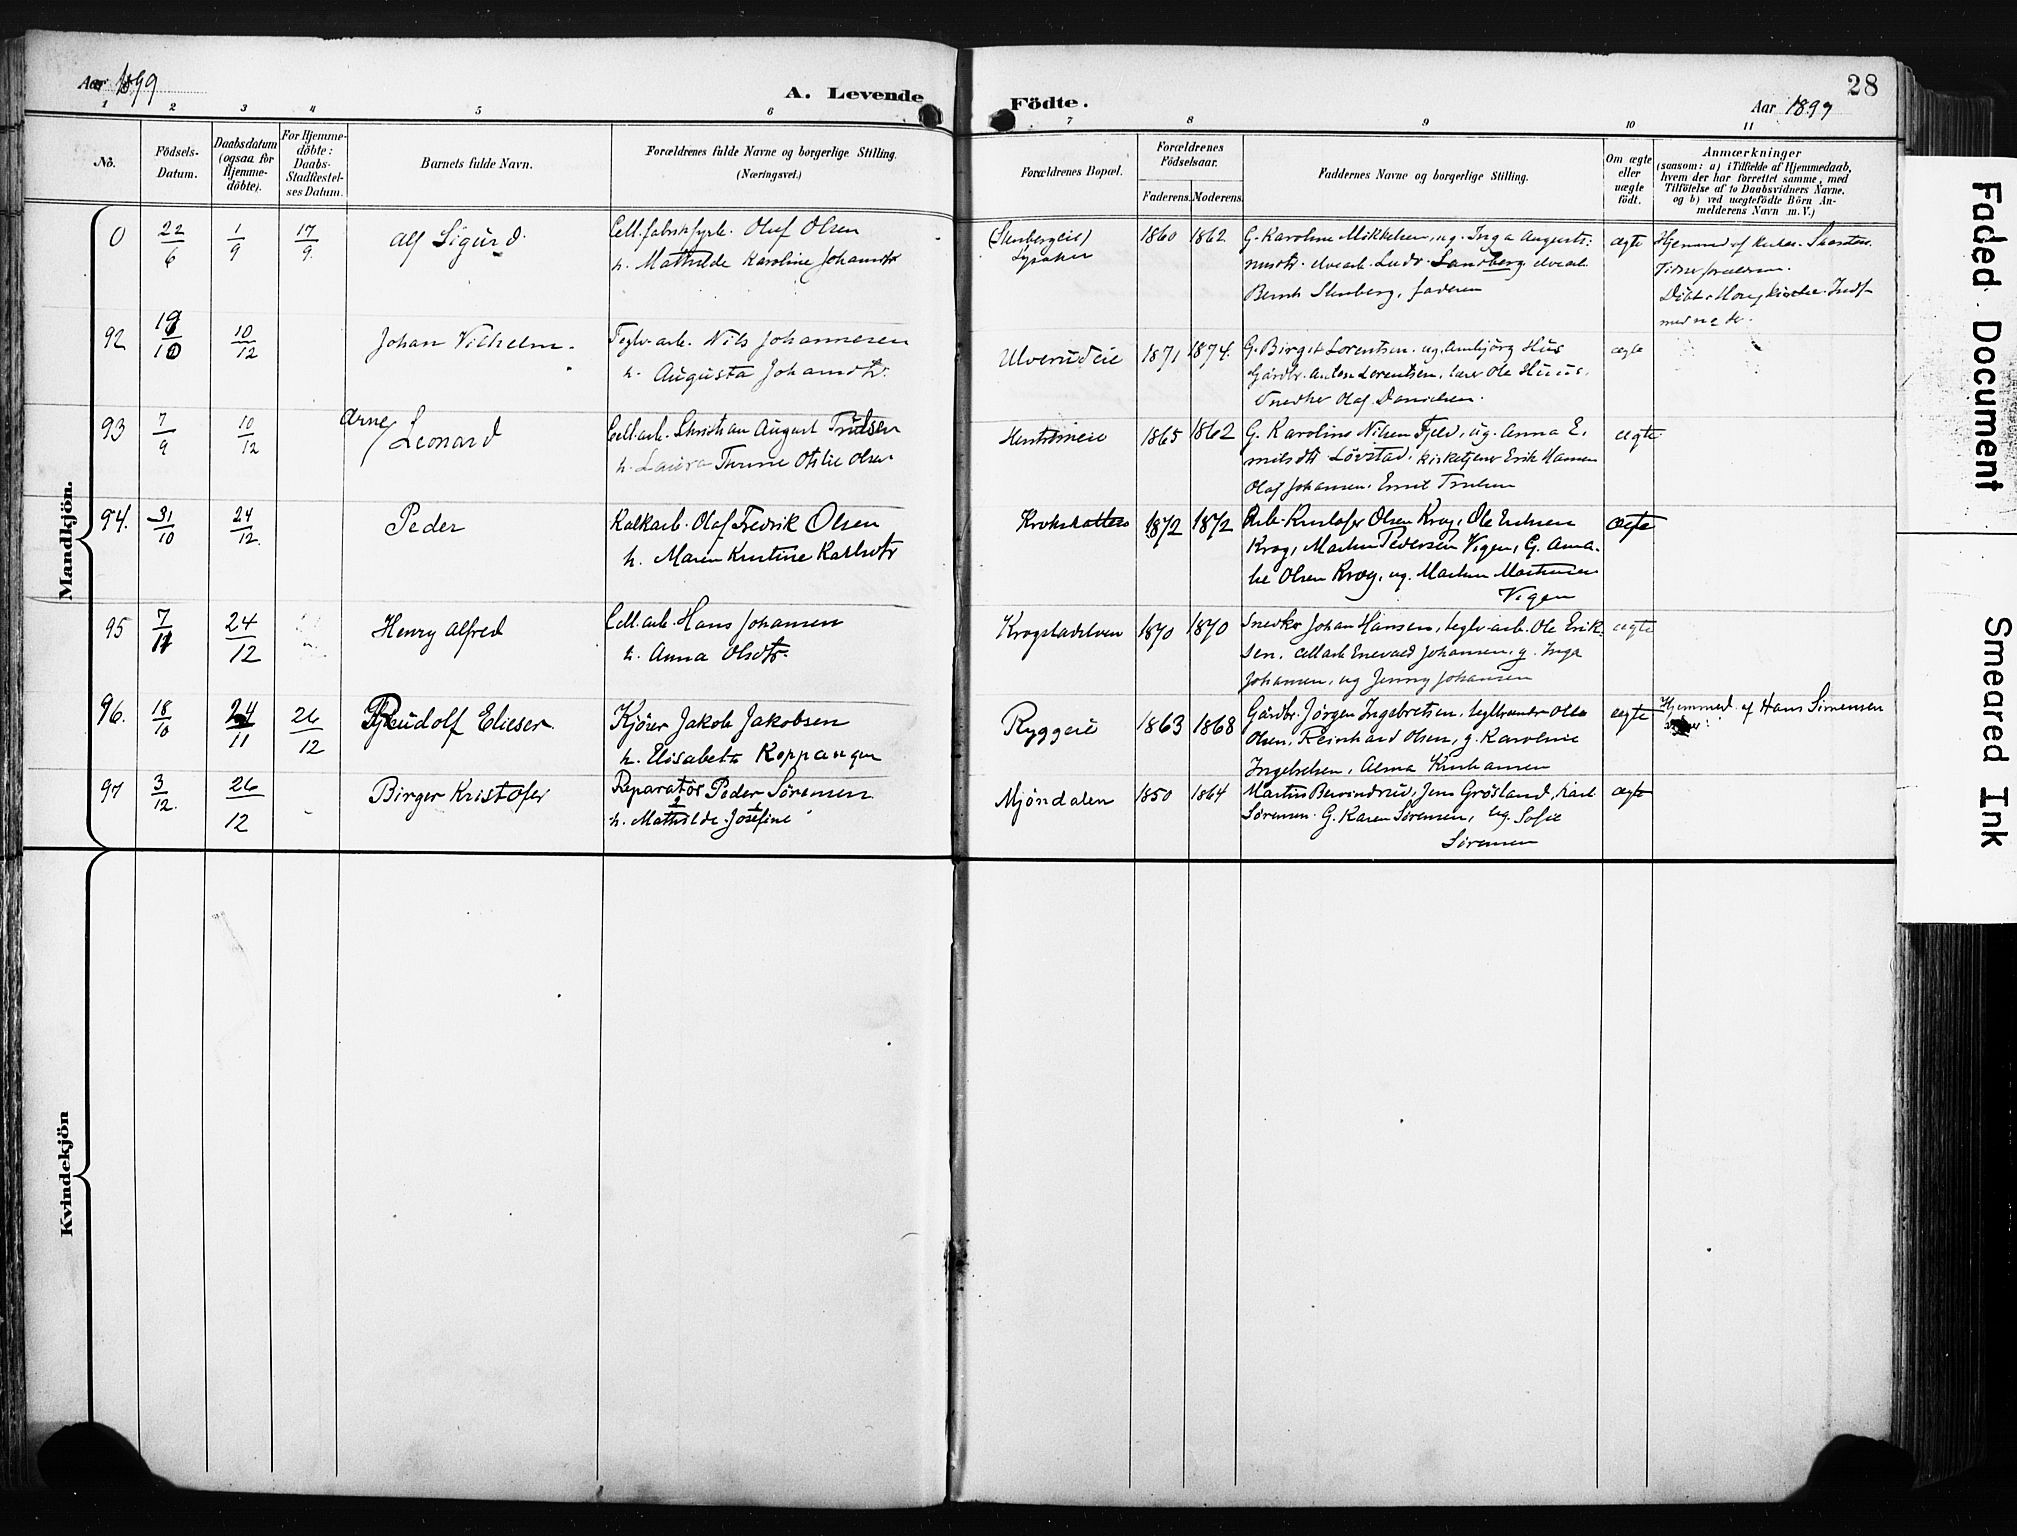 Aar 1899
A. Levende
Födte.
28
Aar 1899
1 2 3 4 5 6 7 8 9 10 11
No.
Födsels-
Datum.
Daabsdatum
(ogsaa for
Hjemme-
döbte).
For Hjemme-
döbte:
Daabs-
Stadfæstel-
ses Datum.
Barnets fulde Navn.
Forældrenes fulde Navne og borgerlige Stilling.
(Næringsvei.)
Forældrenes Bopæl.
Forældrenes
Födselsaar.
Faderens. Moderens.
Faddernes Navne og borgerlige Stilling.
Om ægte
eller
uægte
födt.
Anmærkninger
(saasom: a) i Tilfælde af Hjemmedaab,
hvem der har forrettet samme, med
Tilföielse af to Daabsvidners Navne,
og b) ved uægtefödte Börn An-
melderens Navn m. V.)
Mandkjön.
0 22/6 1/9 17/9 Alf Sigurd
Cell.fabrikfyrb. Oluf Olsen
h. Mathilde Karoline Johansdtr
(Stenbergeie)
Lysaker
1860 1862
G. Karoline Mikkelsen, ug. Inga Augusti-
nusdtr. elvearb. Ludv. Sandberg, elvearb.
Bernh Stenberg, faderen
ægte
92 19/10 10/12 Johan Vilhelm
Teglv.arb. Nils Johannesen
h. Augusta Johansdtr.
Ulverudeie 1871 1874
G. Birgit Lorentsen, ug. Ambjörg Hus
Gårdbr. Anton Lorentsen, lærer Ole Huus,
Snedker Olaf Danielsen.
ægte
93 7/9 10/12 Arne
Leonard
Cell.arb. Christian August Trulsen
h. Laura Turine Otilie Olsen
1865 1862
G. Karoline Nilsen Fjeld, ug. Anna E-
milsdtr Lövstad, kirketjener Erik Hansen
Olaf Johansen, Emil Trulsen
ægte
94. 31/10 24/12 Peder
Kalkarb. Olaf Fredrik Olsen
h. Maren Kristine Karlsdtr
1872 1872
Arb. Kristofer Olsen Krog, Ole Eriksen
Krog, Martin Pedersen Vigen, G. Ama-
lie Olsen Krog, ug. Martin Martinsen
Vigen
ægte
95 7/11 24/12 Henry Alfred
Cell.arb. Hans Johansen
h. Anna Olsdtr.
Krogstadelven 1870 1870
Snedker Johan Hansen, teglv.arb. Ole Erik-
sen, cell.arb Enevald Johansen, g. Inga
Johansen, ug Jenny Johansen
ægte
96. 18/10 24/11 26/12 Rudolf Elieser
Kjörer Jakob Jakobsen
h. Elisabeth Koppangen
Ryggeie 1863 1868
Gårdbr. Jörgen Ingebretsen, Ole
Olsen, Reinhard Olsen, g. Karoline
Ingebretsen, Alma Kristiansen
ægte
Hjemmed. af Hans Simensen
97 3/12. 26/12 Birger Kristofer
Reparatör Peder Sörensen
h. Mathilde Josefine
Mjöndalen 1850 1864
Martin Jens Grösland, Karl
Sörensen. G. Karen Sörensen, ug. Sofie
Sörensen
ægte
Kvindekjön
Faded Document
Smeared Ink